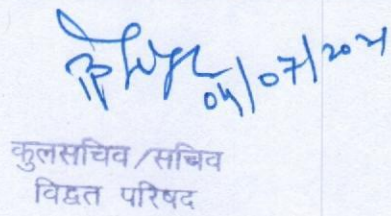 04/07/2021
कुलसचिव/सचिव
विद्वत परिषद